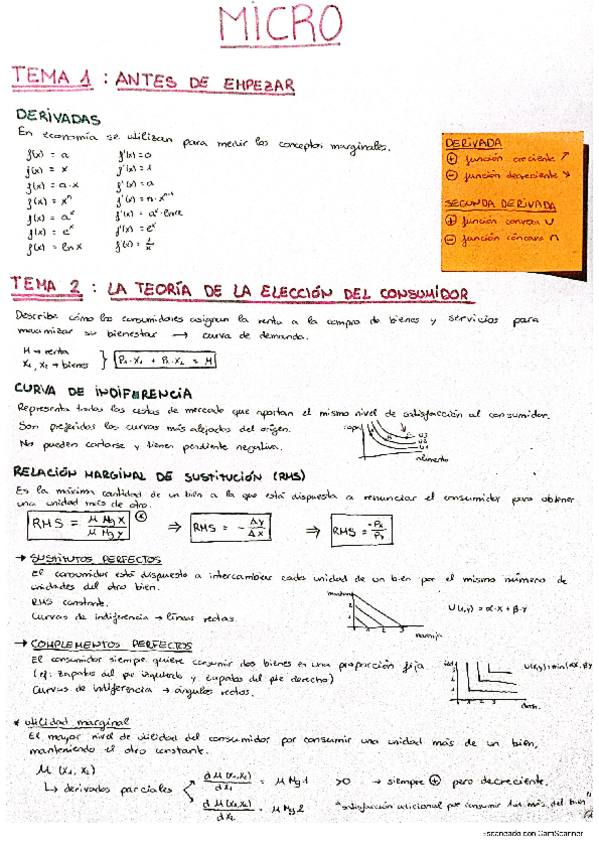 MICRO
TEMA 1 : ANTES DE EMPEZAR
DERIVADAS
En economía se utilizan para medir los conceptos marginales.
f(x) = a f'(x) = 0
f(x) = x f'(x) = 1
f(x) = a·x f'(x) = a
f(x) = xⁿ f'(x) = n·xⁿ⁻¹
f(x) = aˣ f'(x) = aˣ·ln a
f(x) = eˣ f'(x) = eˣ
f(x) = ln x f'(x) = 1/x
DERIVADA
⊕ función creciente ↗
⊖ función decreciente ↘
SEGUNDA DERIVADA
⊕ función convexa ∪
⊖ función cóncava ∩
TEMA 2 : LA TEORÍA DE LA ELECCIÓN DEL CONSUMIDOR
Describe cómo los consumidores asignan la renta a la compra de bienes y servicios para
maximizar su bienestar → curva de demanda.
M → renta
X₁, X₂ → bienes } P₁·X₁ + P₂·X₂ = M
CURVA DE INDIFERENCIA
Representa todas las cestas de mercado que aportan el mismo nivel de satisfacción al consumidor.
Son preferidas las curvas más alejadas del origen.
No pueden cortarse y tienen pendiente negativa.
ropa
U3
U2
U1
alimento
RELACIÓN MARGINAL DE SUSTITUCIÓN (RMS)
Es la máxima cantidad de un bien a la que está dispuesta a renunciar el consumidor para obtener
una unidad más de otro.
RMS = U Mg X / U Mg Y ⇒ RMS = - Δy / Δx ⇒ RMS = -Px / Py
→ SUSTITUTOS PERFECTOS
El consumidor está dispuesto a intercambiar cada unidad de un bien por el mismo número de
unidades del otro bien.
RMS constante.
Curvas de indiferencia → líneas rectas.
U(x,y) = α·x + β·y
→ COMPLEMENTOS PERFECTOS
El consumidor siempre quiere consumir dos bienes en una proporción fija
(ej: zapatos del pie izquierdo y zapatos del pie derecho)
Curvas de indiferencia → ángulos rectos.
izq
derch.
U(x,y) = min(αx, βy
* utilidad marginal
El mayor nivel de utilidad del consumidor por consumir una unidad más de un bien,
manteniendo el otro constante.
U (x₁, x₂)
↳ derivadas parciales
dU(x₁,x₂) / dx₁ = U Mg 1 >0 → siempre ⊕ pero decreciente.
dU(x₁,x₂) / dx₂ = U Mg 2 "satisfacción adicional por consumir 1 u. más del bien"
Escaneado con CamScanner